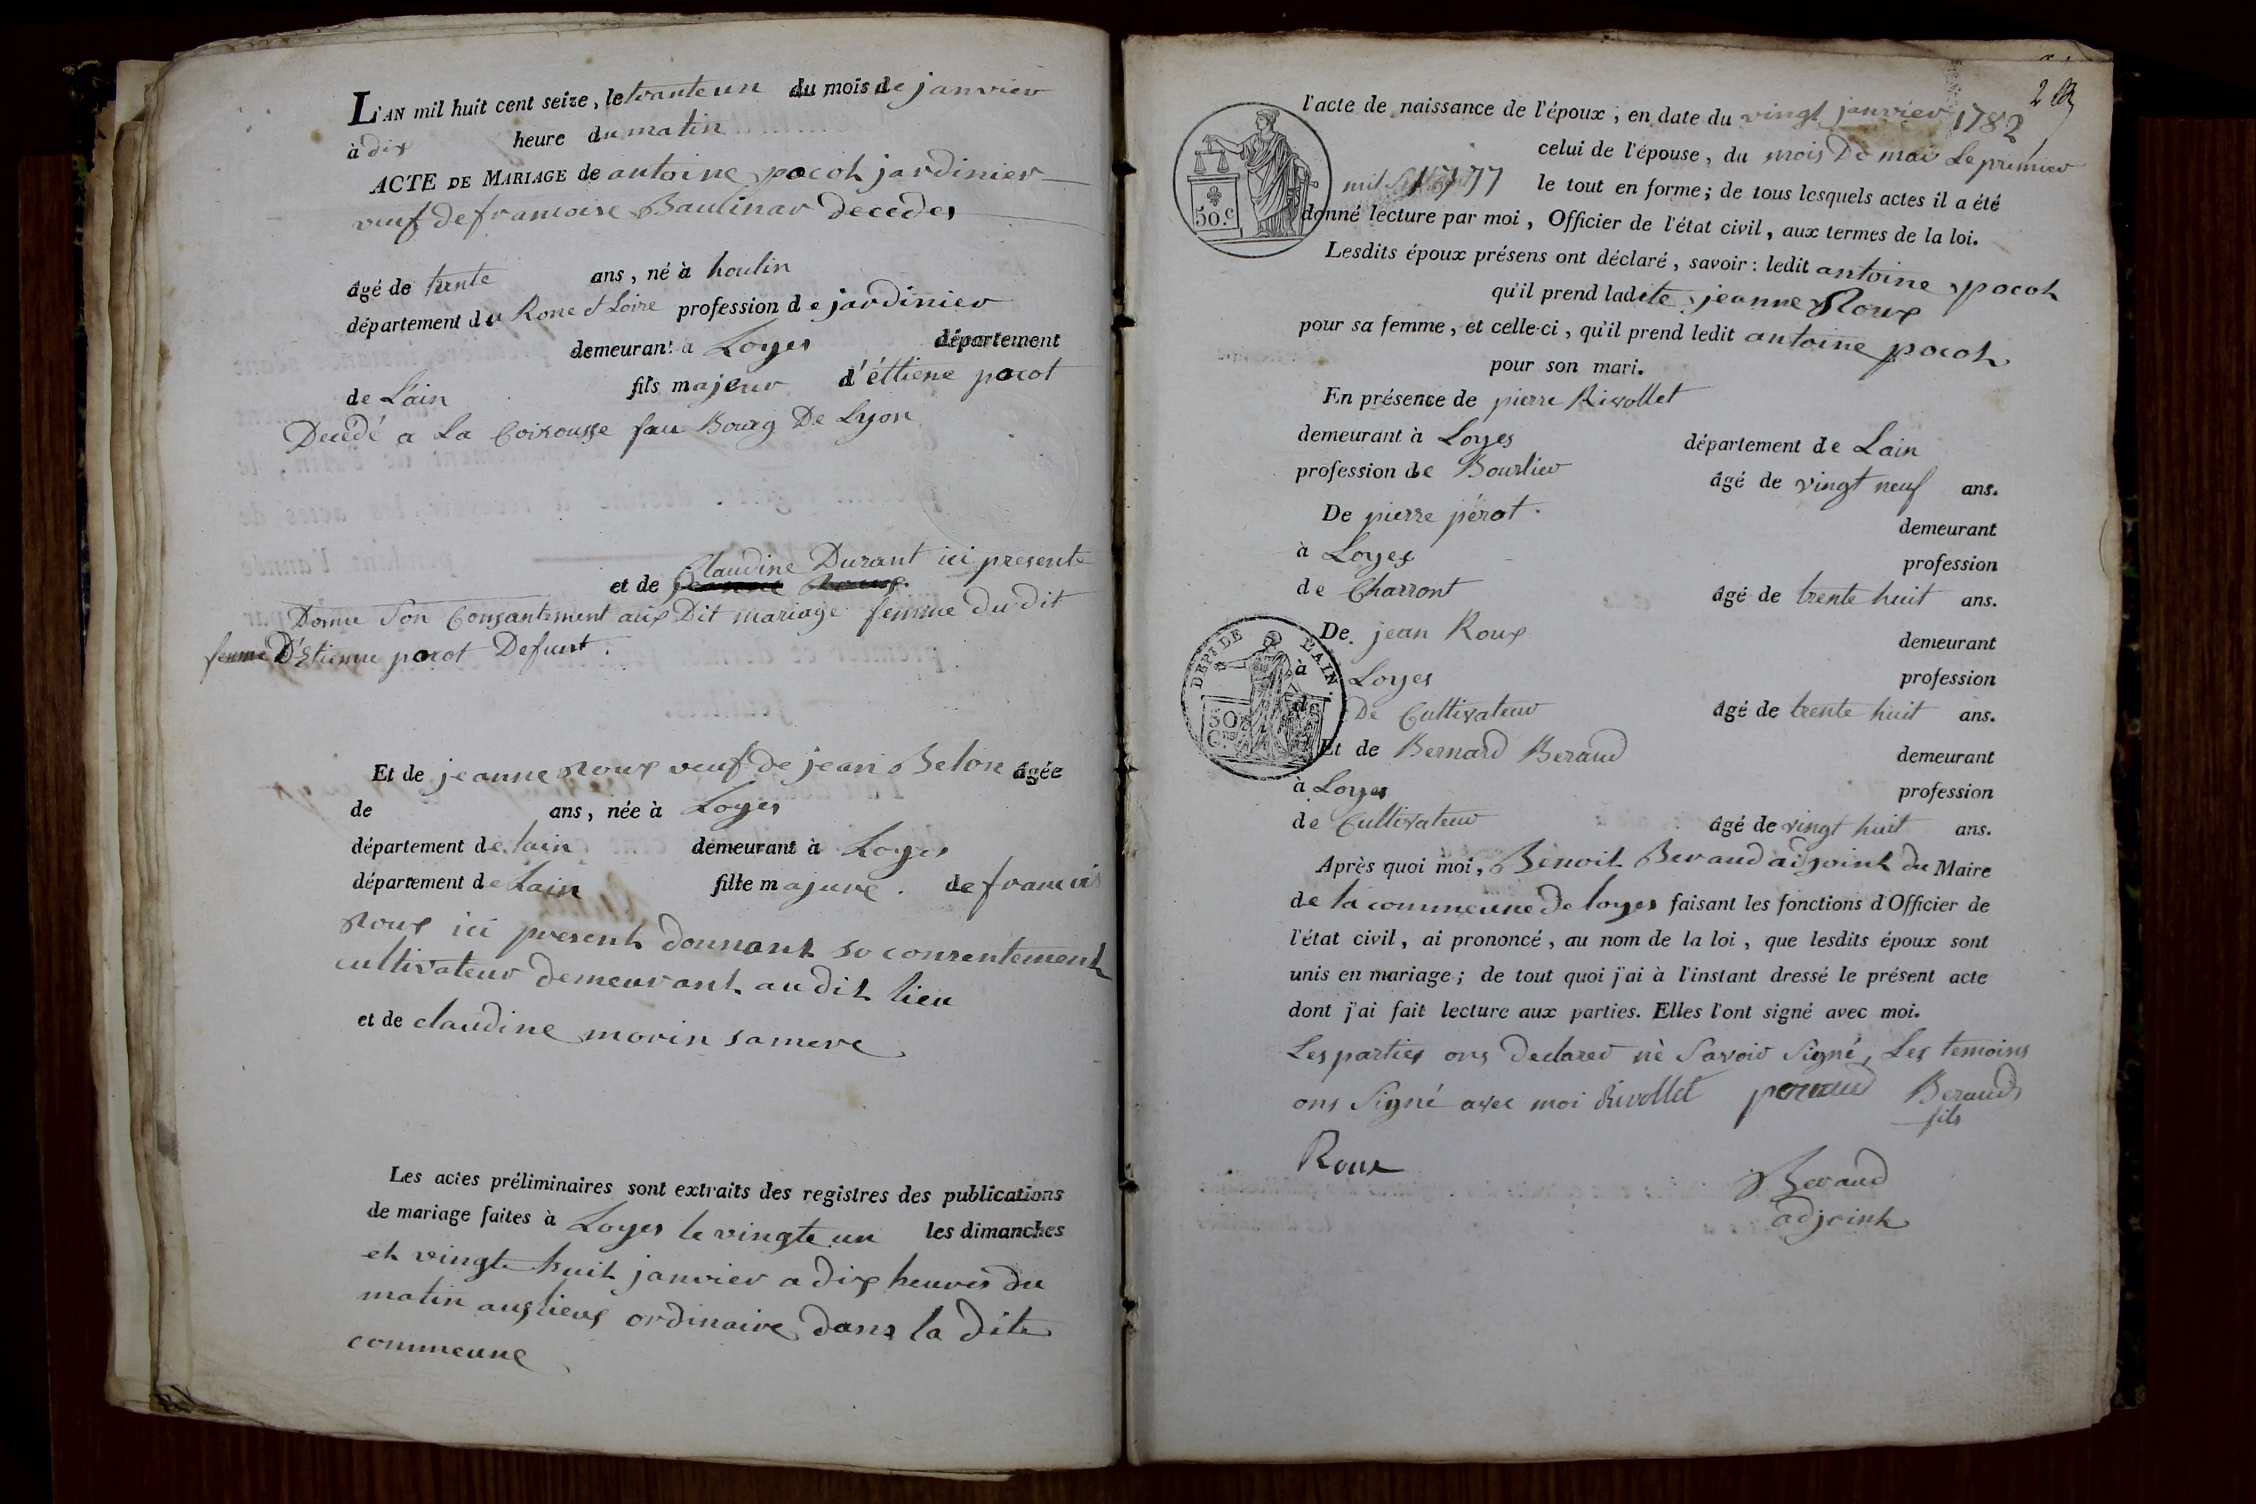 L'AN mil huit cent seize, le trante un du mois de janvier
à dix heure du matin
ACTE DE MARIAGE de antoine pocot jardinier
veuf de francoise Baulinar decedes
âgé de trente ans, né à houlin
département du Rone et Loire profession de jardinier
demeurant à Loyes département
de L'ain fils majeur d'éttiene pocot
Decédé a La Coixousse fau Bourg De Lyon
Claudine Durant ici presente
et de
Donne Son Consantement aux Dit mariage femme du dit
femme D'Etienne pocot Defunt.
Et de jeanne Roux veuf de jean Belon âgée
de ans, née à Loyes
département de lain demeurant à Loyes
département de Lain fille majure. de francois
Roux ici present donnant so consentement
cultivateur demeurant audit lieu
et de claudine morin sa mere
Les actes préliminaires sont extraits des registres des publications
de mariage faites à Loyes le vingte un les dimanches
et vingte huit janvier a dix heures du
matin aux lieux ordinaire dans la dite
commeune
2
l'acte de naissance de l'époux, en date du vingt janvier 1782
celui de l'épouse, du mois De mai Le premier
mil 1777 le tout en forme; de tous lesquels actes il a été
donné lecture par moi, Officier de l'état civil, aux termes de la loi.
50.c
Lesdits époux présens ont déclaré, savoir: ledit antoine pocot
qu'il prend ladite jeanne Roux
pour sa femme, et celle-ci, qu'il prend ledit antoine pocot
pour son mari.
En présence de pierre Rivollet
demeurant à Loyes département de Lain
profession de Bourlier âgé de vingt neuf ans.
De pierre pérot. demeurant
à Loyes profession
de Charront âgé de trente huit ans.
De jean Roux demeurant
à Loyes profession
de De Cultivateur âgé de trente huit ans.
DEPT DE L'AIN.
50
Cmes
Et de Bernard Beraud demeurant
à Loyes profession
de Cultivateur âgé de vingt huit ans.
Après quoi moi, Benoit Beraud adjoint du Maire
de la commeune de loyes faisant les fonctions d'Officier de
l'état civil, ai prononcé, au nom de la loi, que lesdits époux sont
unis en mariage; de tout quoi j'ai à l'instant dressé le présent acte
dont j'ai fait lecture aux parties. Elles l'ont signé avec moi.
Les parties ons Declarer nè Savoir Signé, Les temoins
ons Signé avec moi Rivollet Beraud
fils
Roux
Beraud
adjoint